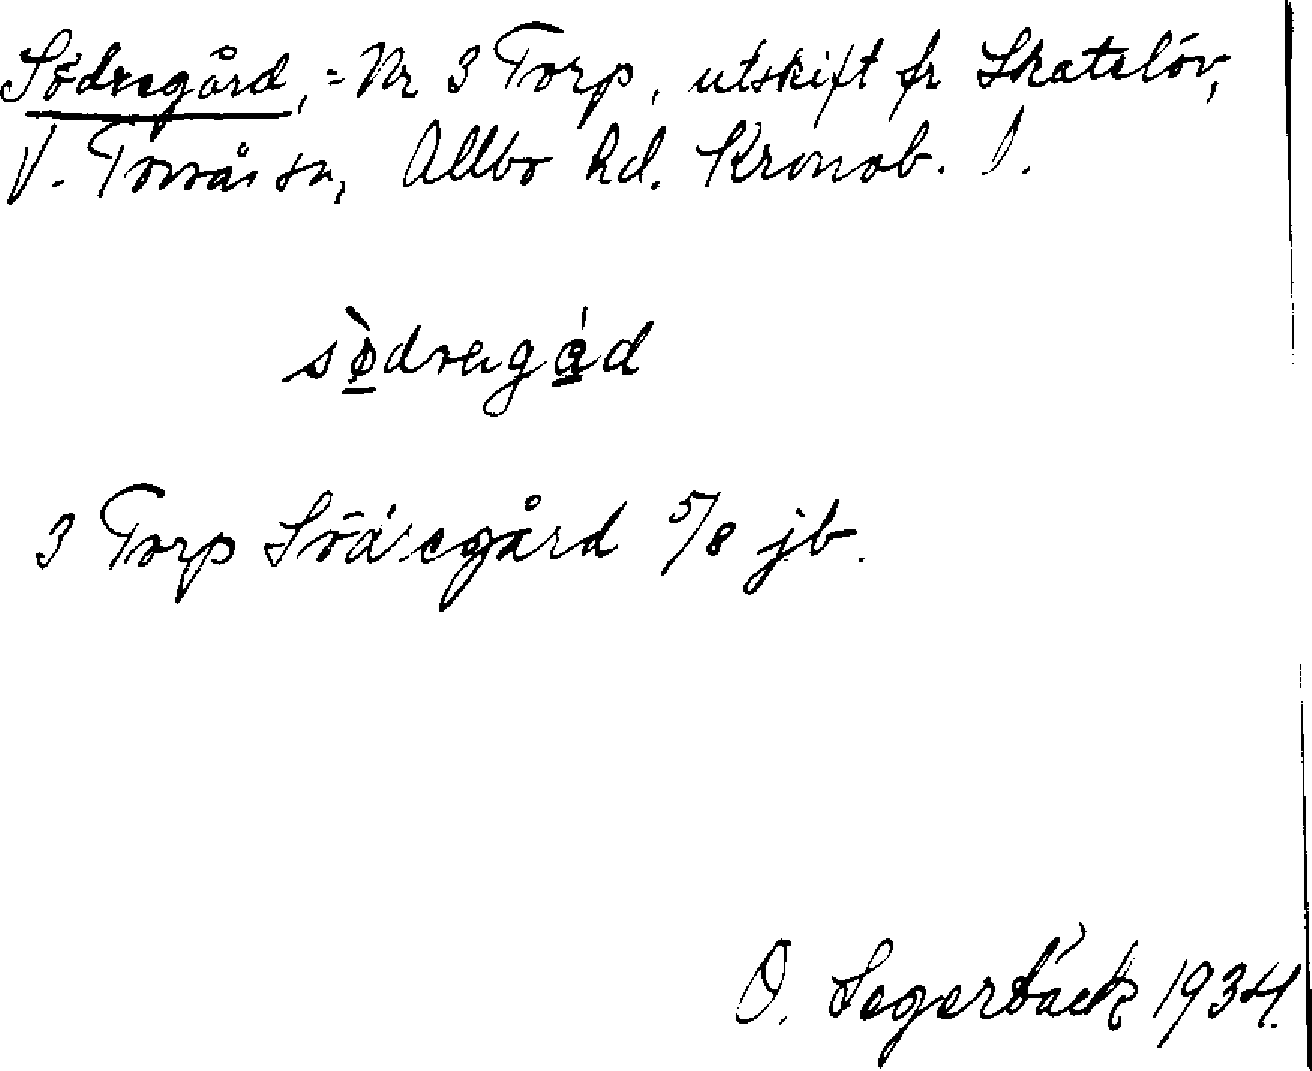 Södregård, = Nr 3 Torp, utskift fr Skatelöv,
V. Torsås sn, Allbo hd. Kronob. l.
sø̀dragád
3 Torp Södregård 5/8 jb.
O. Segerbäck 1934.